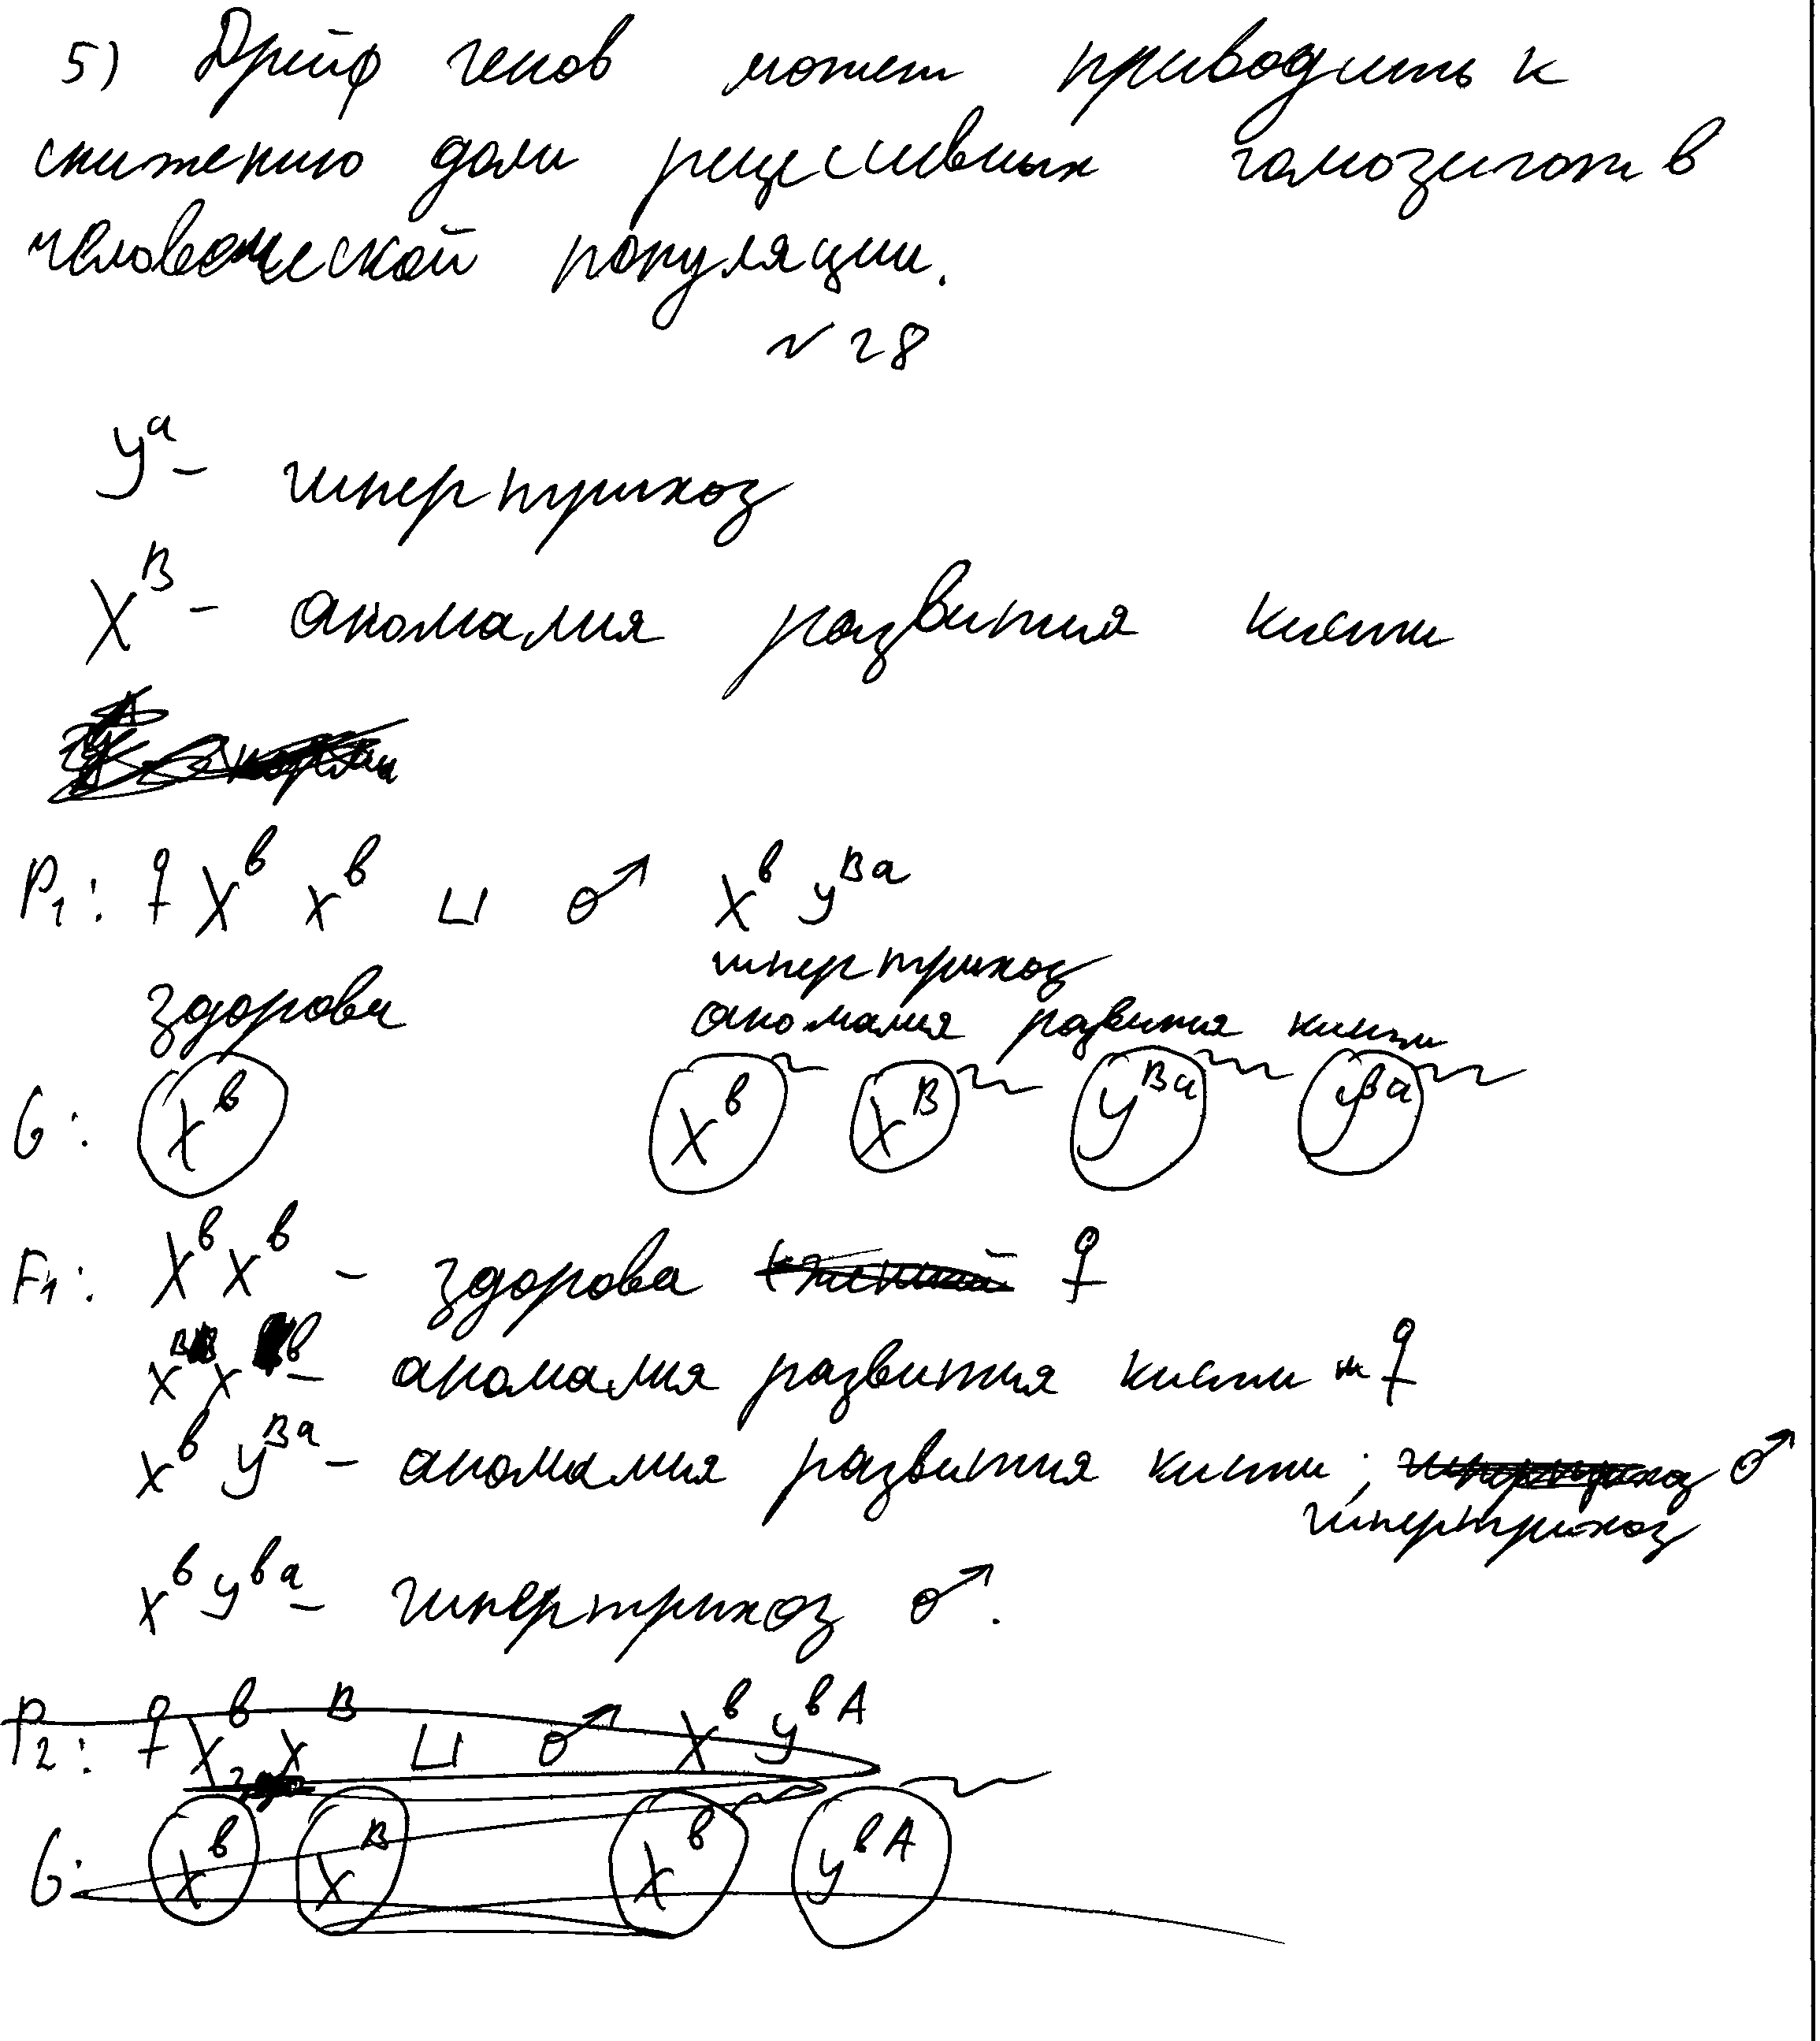 5) Дрейф генов может приводить к
снижению доли рецессивных гомозигот в
человеческой популяции.
№ 28
Yᵃ - гипертрихоз
Xᴮ - аномалия развития кисти
P₁: ♀ Xᵇ Xᵇ ⊔ ♂ Xᵇ Yᴮᵃ
здорова гипертрихоз
аномалия развития кисти
G: Xᵇ Xᵇ Xᴮ Yᴮᵃ Yᴮᵃ
F₁: XᵇXᵇ - здорова ♀
XᴮXᵇ - аномалия развития кисти ♀
Xᵇ Yᴮᵃ - аномалия развития кисти; ♂
гипертрихоз
XᵇYᵇᵃ - гипертрихоз ♂.
P₂: ♀ Xᵇ Xᴮ ⊔ ♂ Xᵇ Yᵇᴬ
G: Xᵇ Xᴮ Xᵇ Yᵇᴬ